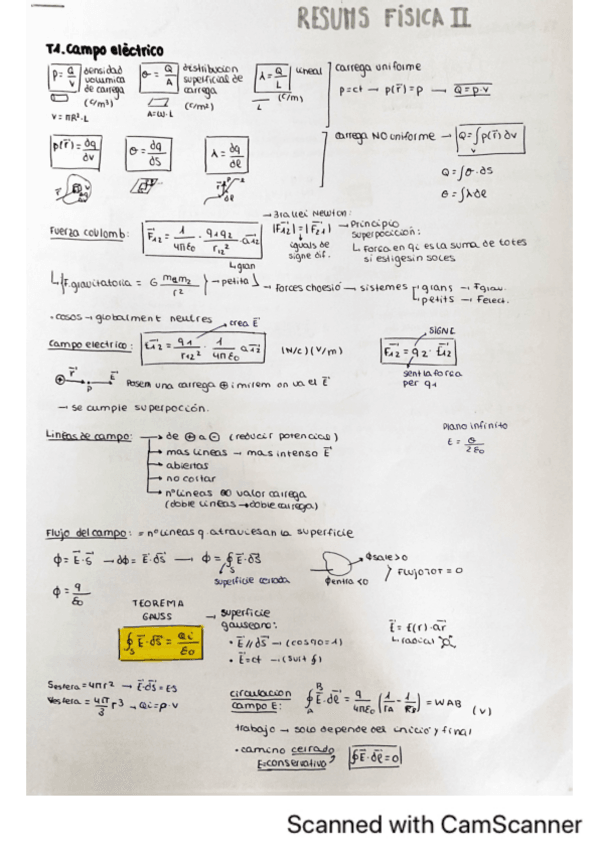 RESUMS FÍSICA II
T1. Campo eléctrico
ρ = Q/V densidad volumica de carrega (C/m³)
V = πR²·L
σ = Q/A distribucion superficial de carrega (C/m²)
A = W·L
λ = Q/L lineal (C/m)
carrega uniforme
ρ = ct → ρ(r⃗) = ρ → Q = ρ·V
ρ(r⃗) = dq/dv
σ = dq/ds
λ = dq/dℓ
carrega NO uniforme → Q = ∫ρ(r⃗)dv
Q = ∫σ·ds
Q = ∫λdℓ
→ 3ra llei Newton:
Fuerza coulomb: F⃗12 = 1/4πε0 · q1q2/r12² · a⃗12
|F⃗12| = |F⃗21|
iguals de signe dif.
→ Principio superposicion:
↳ Forca en qi es la suma de totes
si estigesin soles
↳ gran
F. gravitatoria = G m1m2/r² → petita
→ forces choesió → sistemes
grans → Fgrav.
petits → Felect.
• cosos → globalment neutres
crea E⃗
Campo electrico: E⃗12 = q1/r12² · 1/4πε0 a⃗12 (N/C) (V/m)
SIGNE
F⃗12 = q2 · E⃗12
sent la forca per q1
r⃗ E⃗
P
Posem una carrega ⊕ i mirem on va el E⃗
→ se cumple superpoción.
Lineas de campo: → de ⊕ a ⊖ (reducir potencial)
→ mas lineas → mas intenso E⃗
→ abiertas
→ no cortar
→ nº lineas ∞ valor carrega
(doble lineas → doble carrega)
Plano infinito
E = σ/2ε0
Flujo del campo: = nº lineas q. atraviesan la superficie
ϕ = E⃗·S⃗ → dϕ = E⃗·dS⃗ → ϕ = ∮E⃗·dS⃗
S
superficie cerrada
ϕsale>0
ϕentra<0
Flujo TOT = 0
ϕ = q/ε0
TEOREMA GAUSS
∮S E⃗·dS⃗ = Qi/ε0
→ superficie gauseana:
• E⃗ // dS⃗ → (cos90=1)
• E⃗ = ct → (surt ∮)
E⃗ = E(r)·a⃗r
↳ radial
Sesfera = 4πr² → E⃗·dS⃗ = ES
Vesfera = 4π/3 r³ → Qi = ρ·V
circulacion campo E: ∮ᴮA E⃗·dℓ⃗ = q/4πε0 (1/rA − 1/rB) = WAB (V)
trabajo → solo depende del inicio y final
• camino cerrado
E=conservativo? ∮E⃗·dℓ⃗ = 0
Scanned with CamScanner